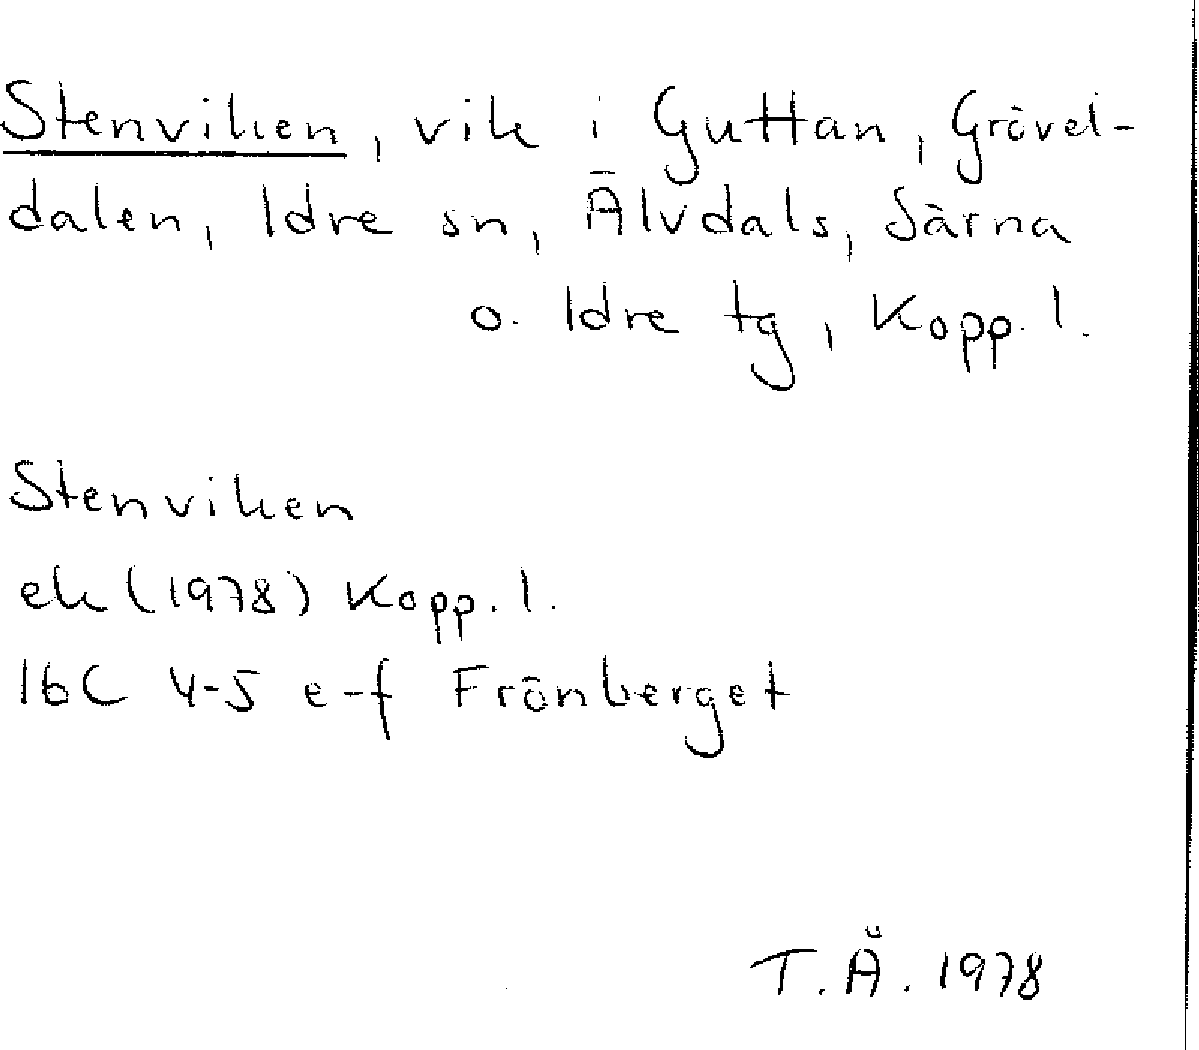 Stenviken, vik i Guttan, Grövel-
dalen, Idre sn, Älvdals, Särna
o. Idre tg, Kopp. l.
Stenviken
ek (1978) Kopp. l.
16C 4-5 e-f Frönberget
T. Å. 1978